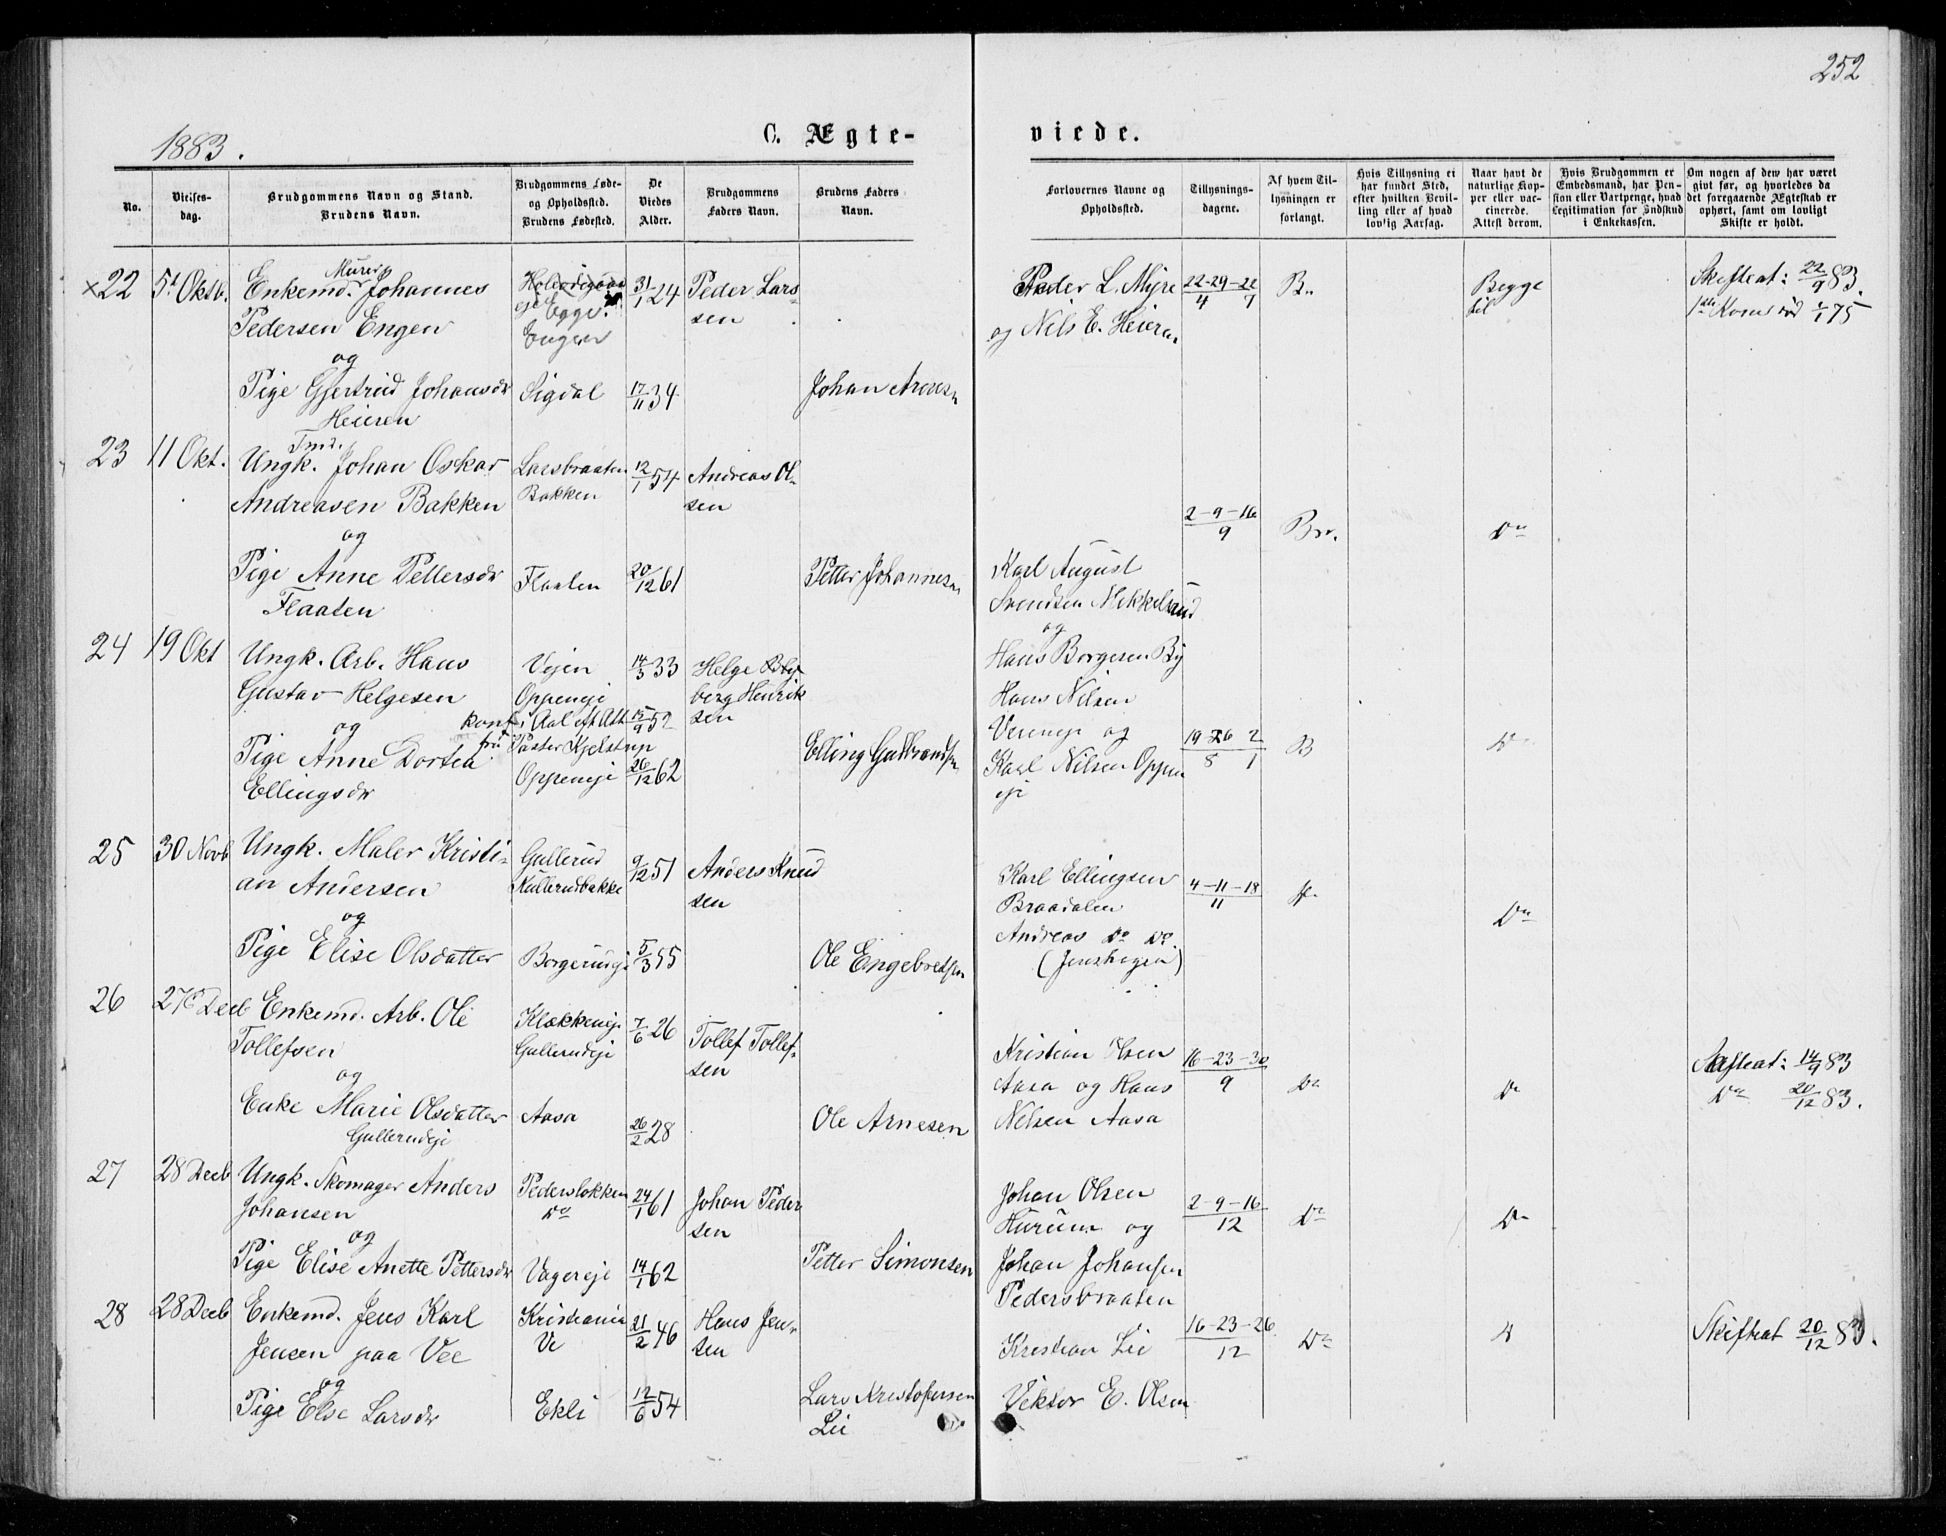 252
1883.
C. Ægte-
viede.
No.
Vielses-
dag.
Brudgommens Navn og Stand.
Brudens Navn.
Brudgommens Føde-
og Opholdssted.
Brudens Fødested.
De
Viedes
Alder.
Brudgommens
Faders Navn.
Brudens Faders
Navn.
Forlovernes Navne og
Opholdssted.
Tillysnings-
dagene.
Af hvem Til-
lysningen er
forlangt.
Hvis Tillysning ei
har fundet Sted,
efter hvilken Bevil-
ling eller af hvad
lovlig Aarsag.
Naar havt de
naturlige Kop-
per eller vac-
cinerede.
Attest derom.
Hvis Brudgommen er
Embedsmand, har Pen-
sion eller Vartpenge, hvad
Legitimation for Indskud
i Enkekassen.
Om nogen af dem har været
givt før, og hvorledes da
det foregaaende Ægteskab er
ophørt, samt om lovligt
Skifte er holdt.
×22 5t Oktb. Enkemd. Murer Johannes
Pedersen Engen
og
Egge.
Engen
31/1 24 Peder Lars-
sen
Peder L. Myre
og Nils E. Heieren
22-29-22
4 7
B.
Begge
til
Skifteat: 22/9 83.
1/1 75
Pige Gjertrud Johansdr
Heieren
Sigdal 17/11 34 Johan Arnesn
23 11 Okt. Ungk. Tmd. Johan Oskar
Andreasen Bakken
og
Larsbraaten
Bakken
12/1 54 Andreas Ol-
sen
2-9-16
9
Br. Do
Pige Anne Pettersdr
Flaaten
Flaaten 20/12 61 Petter Johannesn
Karl August
Svendsen Mekkelsrud
og
Hans Borgersen By
24 19 Okt Ungk. Arb. Hans
Gustav Helgesen
og
Vejen
Oppeneje
14/3 33 Helge
berg Henrik
sen
konf. i Aal eft Att 15/9 52
fra Pastor Kjelstrup
Hans Nilsen
Vereneje og
Karl Nilsen Oppen
eje
19-26 2
8 1
B Do
Pige Anne Dortea
Ellingsdr
Oppeneje 26/12 62 Elling Gulbrandsen
25 30 Novb Ungk. Maler Kristi-
an Andersen
og
Gullerud
Kullerudbakke
9/12 51 Anders Knud
sen
Karl Ellingsen
Braadalen
Andreas Do Do.
(Jenshagen)
4-11-18
11
Do
Pige Elise Olsdatter Borgerudeje 5/3 55 Ole Engebretsen
26 27de Decb Enkemd. Arb. Ole
Tollefsen
og
Klækkeneje
Gullerudeje
7/6 26 Tollef Tollef-
sen
Kristian Olsen
Aasa og Hans
Nilsen Aasa
16-23-30
9
Do Do
Skifteat: 14/9 83
Do 20/12 83.
Enke Marie Olsdatter
Gullerudeje
Aasa 26/2 28 Ole Arnesen
27 28 Decb Ungk. Skomager Anders
Johansen
og
Pedersløkken
Do
24/1 61 Johan Peder
sen
Johan Olsen
Hurum og
Johan Johansen
Pedersbraaten
2-9-16
12
Do Do
Pige Elise Anette Pettersdr Vagereje 14/1 62 Petter Simonsen
28 28 Decb Enkemd. Jens Karl
Jensen paa Vee
og
Kristiania
Ve
21/2 46 Hans Jen-
sen
Kristian Lie
16-23-26
12
Do
Skifteat 20/12 83.
Pige Else Larsdr Ekli 12/6 54 Lars Kristofersen
Lie
Viktor E. Olsen